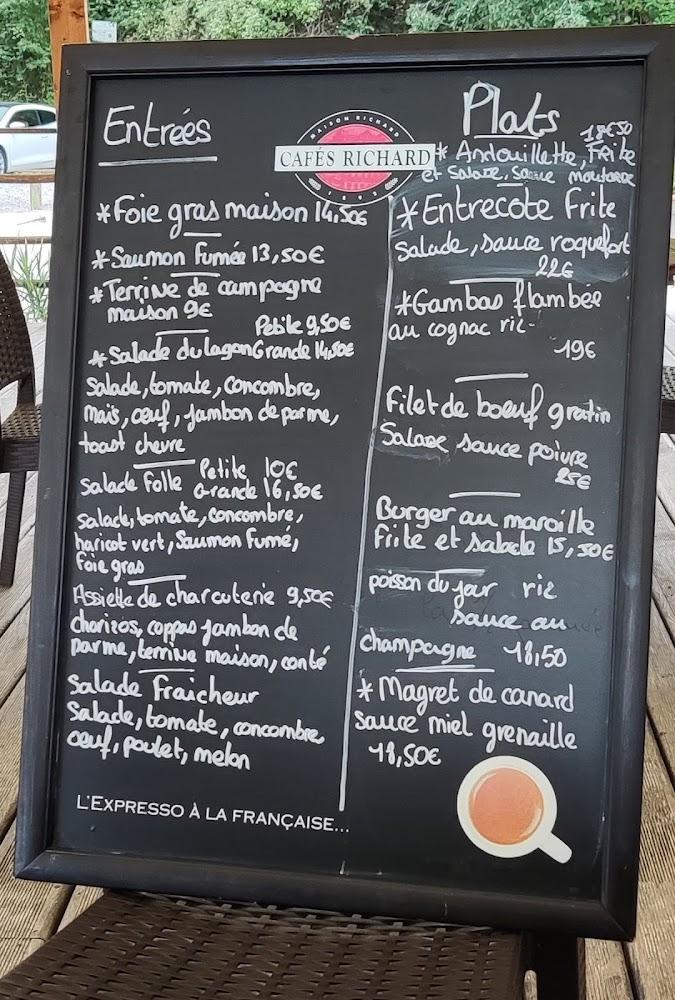 Entrées
*Foie gras maison 14,50€
*Saumon Fumée 13,50€
*Terrine de campagne
maison 9€
Petite 9,50€
*Salade du lagon Grande 14,50€
Salade, tomate, concombre,
maïs, œuf, jambon de parme,
toast chevre
Salade Folle Petite 10€
Grande 16,50€
Salade, tomate, concombre,
haricot vert, Saumon fumé,
foie gras
Assiette de charcuterie 9,50€
chorizos, coppas jambon de
parme, terrine maison, conté
Salade Fraicheur
Salade, tomate, concombre
œuf, poulet, melon
L'EXPRESSO À LA FRANÇAISE...
MAISON RICHARD
CAFÉS RICHARD
1892
Plats
18€50
*Andouillette, Frite
et Salade, Sauce moutarde
*Entrecote Frite
Salade, sauce roquefort
22€
*Gambas flambée
au cognac riz-
19€
Filet de boeuf gratin
Salade sauce poivre
25€
Burger au maroille
Frite et salade 15,50€
poisson du jour riz
sauce au
champagne 18,50
*Magret de canard
sauce miel grenaille
18,50€